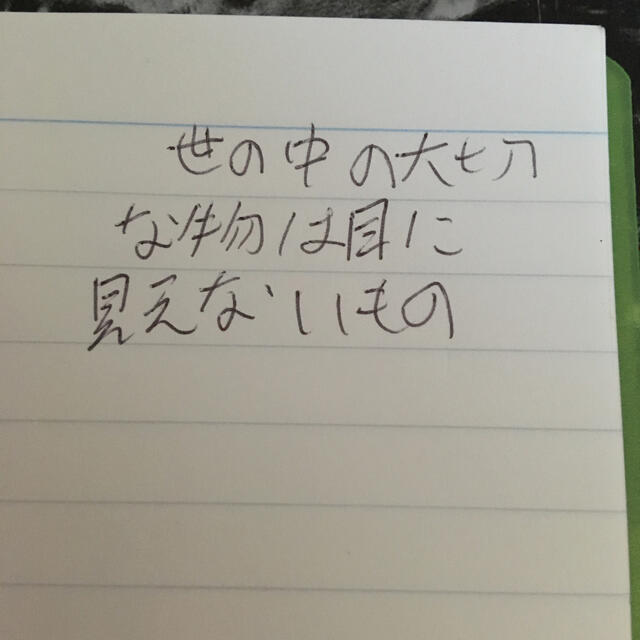 世の中の大切
な物は目に
見えないもの